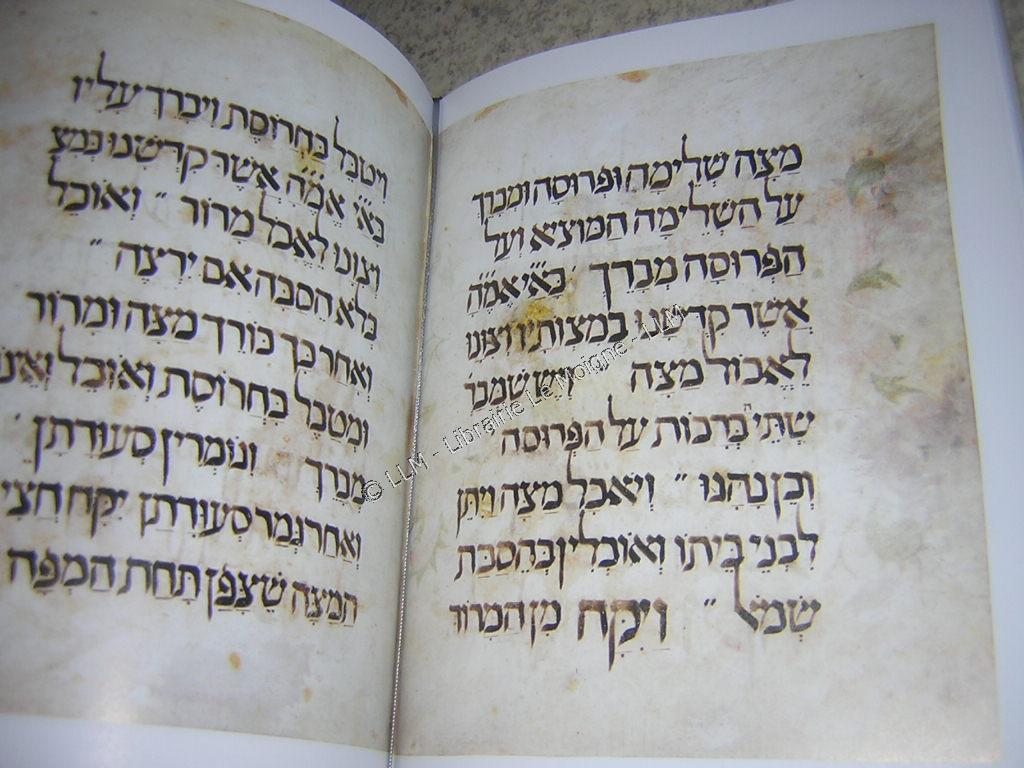 מצה שלימה ופרוסה ומברך
על השלימה המוציא ועל
הפרוסה מברך בא״י אמ״ה
אשר קדשנו במצותיו וצונו
לאכול מצה ויש שמברׄ
שתי ברכות על הפרוסה
וכן נהגו ״ ויאכל מצה ויתן
לבני ביתו ואוכלין בהסבת
שמאל ״ ויקח מן המרור
ויטבל בחרוסת ויברך עליו
בא״י אמ״ה אשר קדשנו במצ
וצונו לאכל מרור ״ ואוכל
בלא הסבה אם ירצה ״
ואחר כך כורך מצה ומרור
ומטבל בחרוסת ואוכל ואינו
מברך וגומרין סעודתן
ואחר גמר סעודתן יקח חצי
המצה שצפן תחת המפה
© LLM - Librairie Le Moigne - LLM